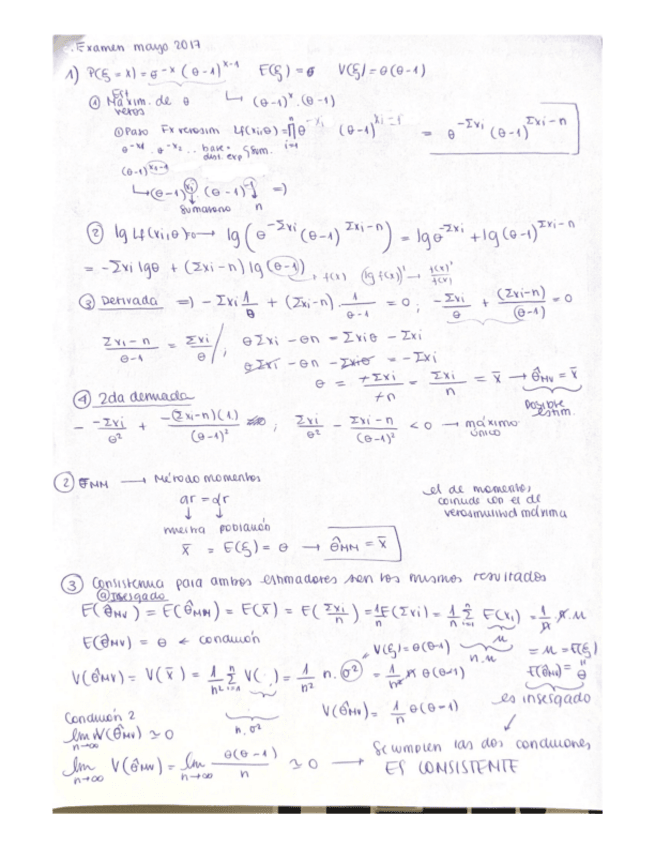 Examen mayo 2017
1) P(ξ = x) = θ^-x (θ-1)^x-1   E(ξ) = θ   V(ξ) = θ(θ-1)
① Est Máxim. de θ   ↳ (θ-1)^x · (θ-1)
veros
① Paso Fx verosim Lf(xi;θ) = ∏ i=1 n θ^-xi (θ-1)^xi-1 = θ^-Σxi (θ-1)^Σxi-n
θ^-x1 · θ^-x2 ..
(θ-1)^x1-1
↳ (θ-1)^xi · (θ-1)^-1 ⇒
sumatorio   n
② lg Lf(xi;θ) → lg (θ^-Σxi (θ-1)^Σxi-n) = lg θ^-Σxi + lg (θ-1)^Σxi-n
= -Σxi lgθ + (Σxi-n) lg (θ-1) → f(x)   (lg f(x))' → f(x)'/f(x)
③ Derivada ⇒ -Σxi 1/θ + (Σxi-n) · 1/θ-1 = 0 ; -Σxi/θ + (Σxi-n)/(θ-1) = 0
Σxi-n/θ-1 = Σxi/θ ; θΣxi - θn = Σxiθ - Σxi
θΣxi - θn - Σxiθ = -Σxi
θ = +Σxi/+n = Σxi/n = x̄ → θ̂MV = x̄
posible
estim.
④ 2da derivada
- -Σxi/θ² + -(Σxi-n)(1)/(θ-1)² ; Σxi/θ² - Σxi-n/(θ-1)² < 0 → máximo
único
② θMM → Método momentos
ar = αr
↓ ↓
muestra población
x̄ = E(ξ) = θ → θ̂MM = x̄
el de momentos,
coincide con el de
verosimilitud máxima
③ Consistencia para ambos estimadores son los mismos resultados
ⓐ Insesgado
E(θ̂MV) = E(θ̂MM) = E(x̄) = E(Σxi/n) = 1/n E(Σxi) = 1/n Σ i=1 n E(xi) = 1/n · n · μ
μ
n·μ
E(θ̂MV) = θ ← condición
= μ = E(ξ)
E(θ̂MV) = θ
es insesgado
V(ξ) = θ(θ-1)
V(θ̂MV) = V(x̄) = 1/n² Σ i=1 n V( · ) = 1/n² n·σ² = 1/n² n θ(θ-1)
n·σ²
V(θ̂MV) = 1/n θ(θ-1)
Condición 2
lim n→∞ V(θ̂MV) ≃ 0
lim n→∞ V(θ̂MV) = lim n→∞ θ(θ-1)/n ≃ 0 → Se cumplen las dos condiciones
ES CONSISTENTE